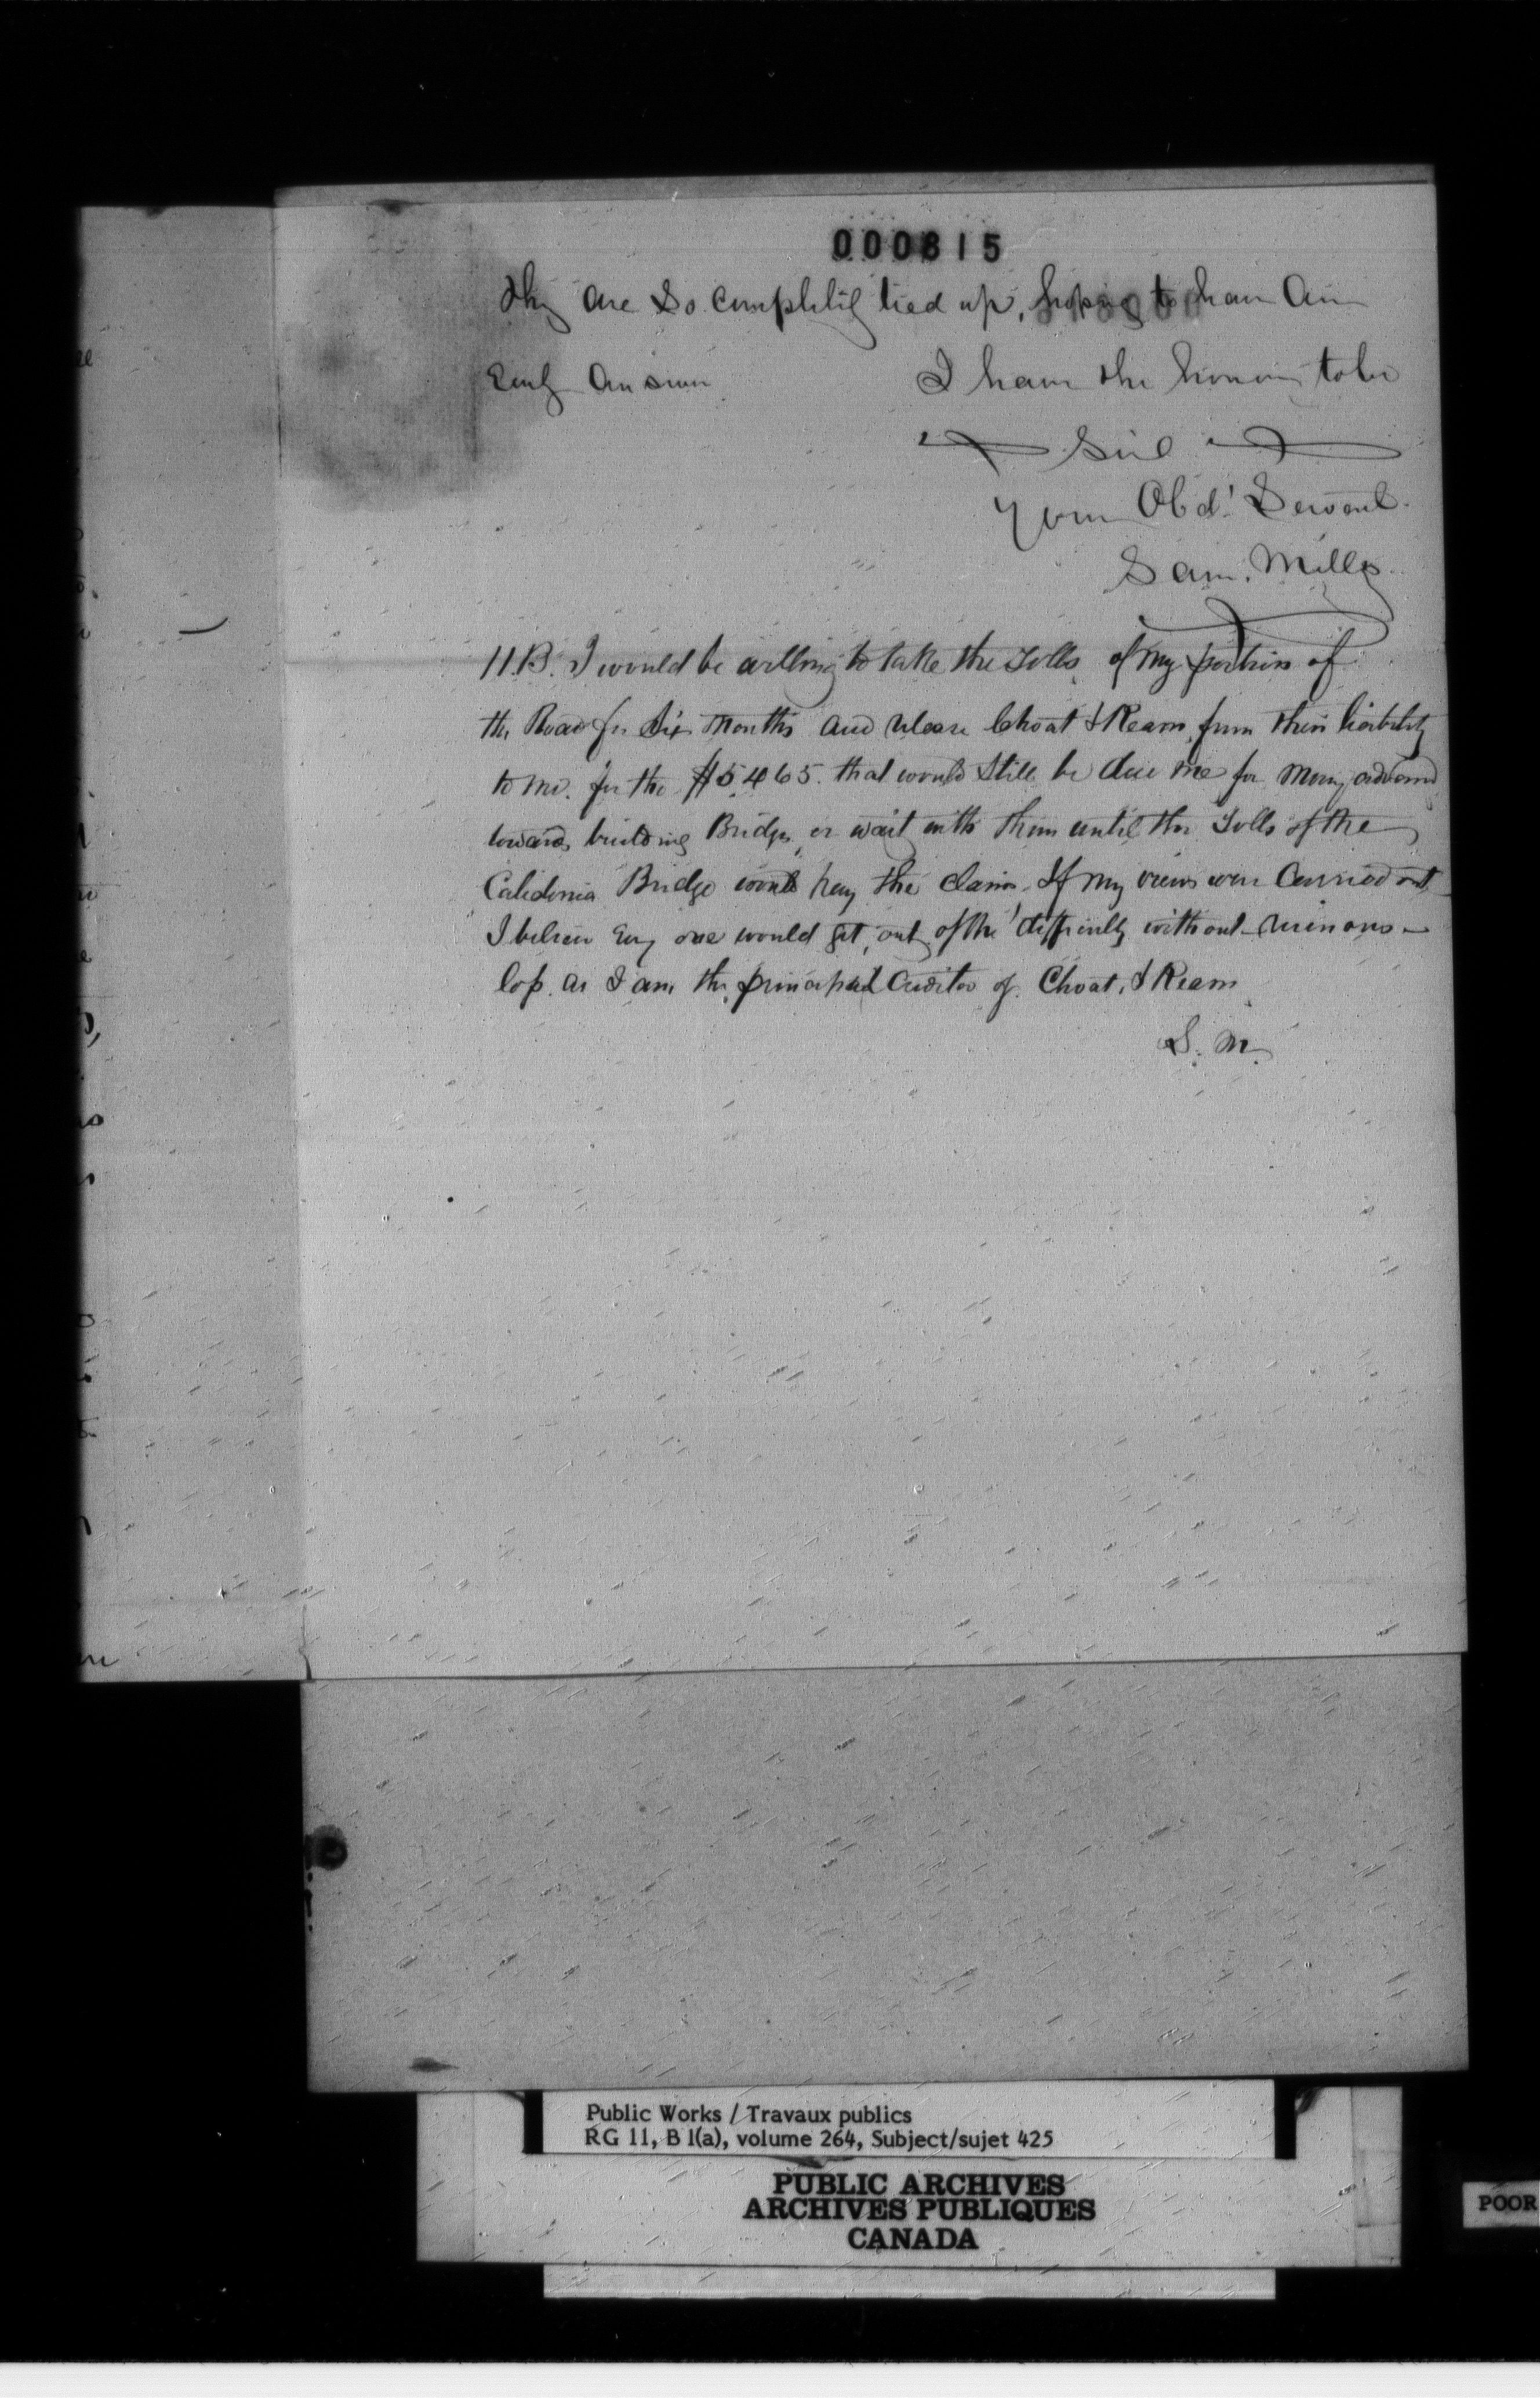 000815
They are so completely tied up, hoping to have an
Early Answer
I have the honor to be
Sir
Your Obdt Servant
Sam. Mills
N.B. I would be willing to take the Tolls of my portion of
the Road for Six Months and release Choat & Ream from their liability
to me. for the $5465. that would still be due me for Money advanced
towards building Bridge, or wait with them until the Tolls of the
Calidonia Bridge would pay the claim. If my views were Carried out
I believe Evry one would get out of the difficulty without ruinous
loss. as I am the principal Creditor of Choat, & Ream
S. M.
Public Works / Travaux publics
RG 11, B 1(a), volume 264, Subject/sujet 425
PUBLIC ARCHIVES
ARCHIVES PUBLIQUES
CANADA
POOR